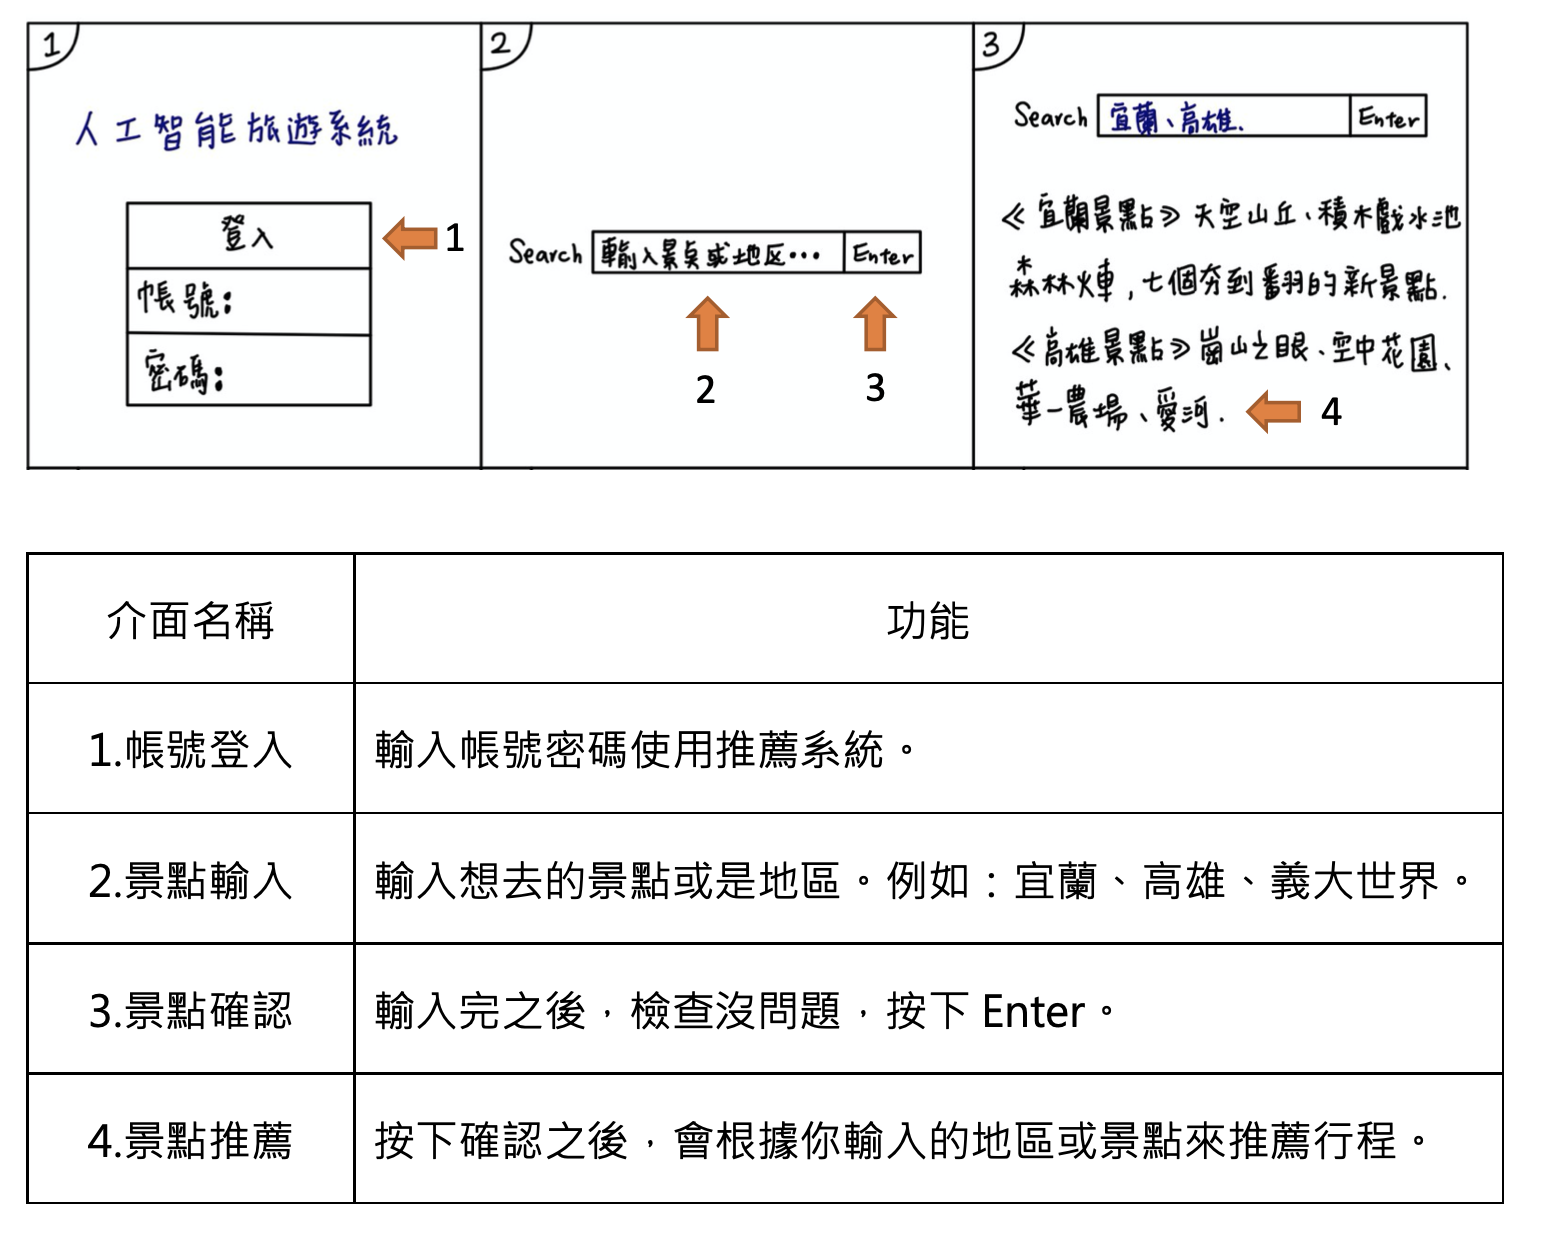 1
人工智能旅遊系統
登入
帳號:
密碼:
1
2
Search 輸入景點或地区... Enter
2
3
3
Search 宜蘭、高雄. Enter
《宜蘭景點》天空山丘、積木戲水池
森林火車,七個夯到翻的新景點.
《高雄景點》崗山之眼、空中花園、
華一農場、愛河.
4
介面名稱 功能
1.帳號登入 輸入帳號密碼使用推薦系統。
2.景點輸入 輸入想去的景點或是地區。例如：宜蘭、高雄、義大世界。
3.景點確認 輸入完之後，檢查沒問題，按下 Enter。
4.景點推薦 按下確認之後，會根據你輸入的地區或景點來推薦行程。